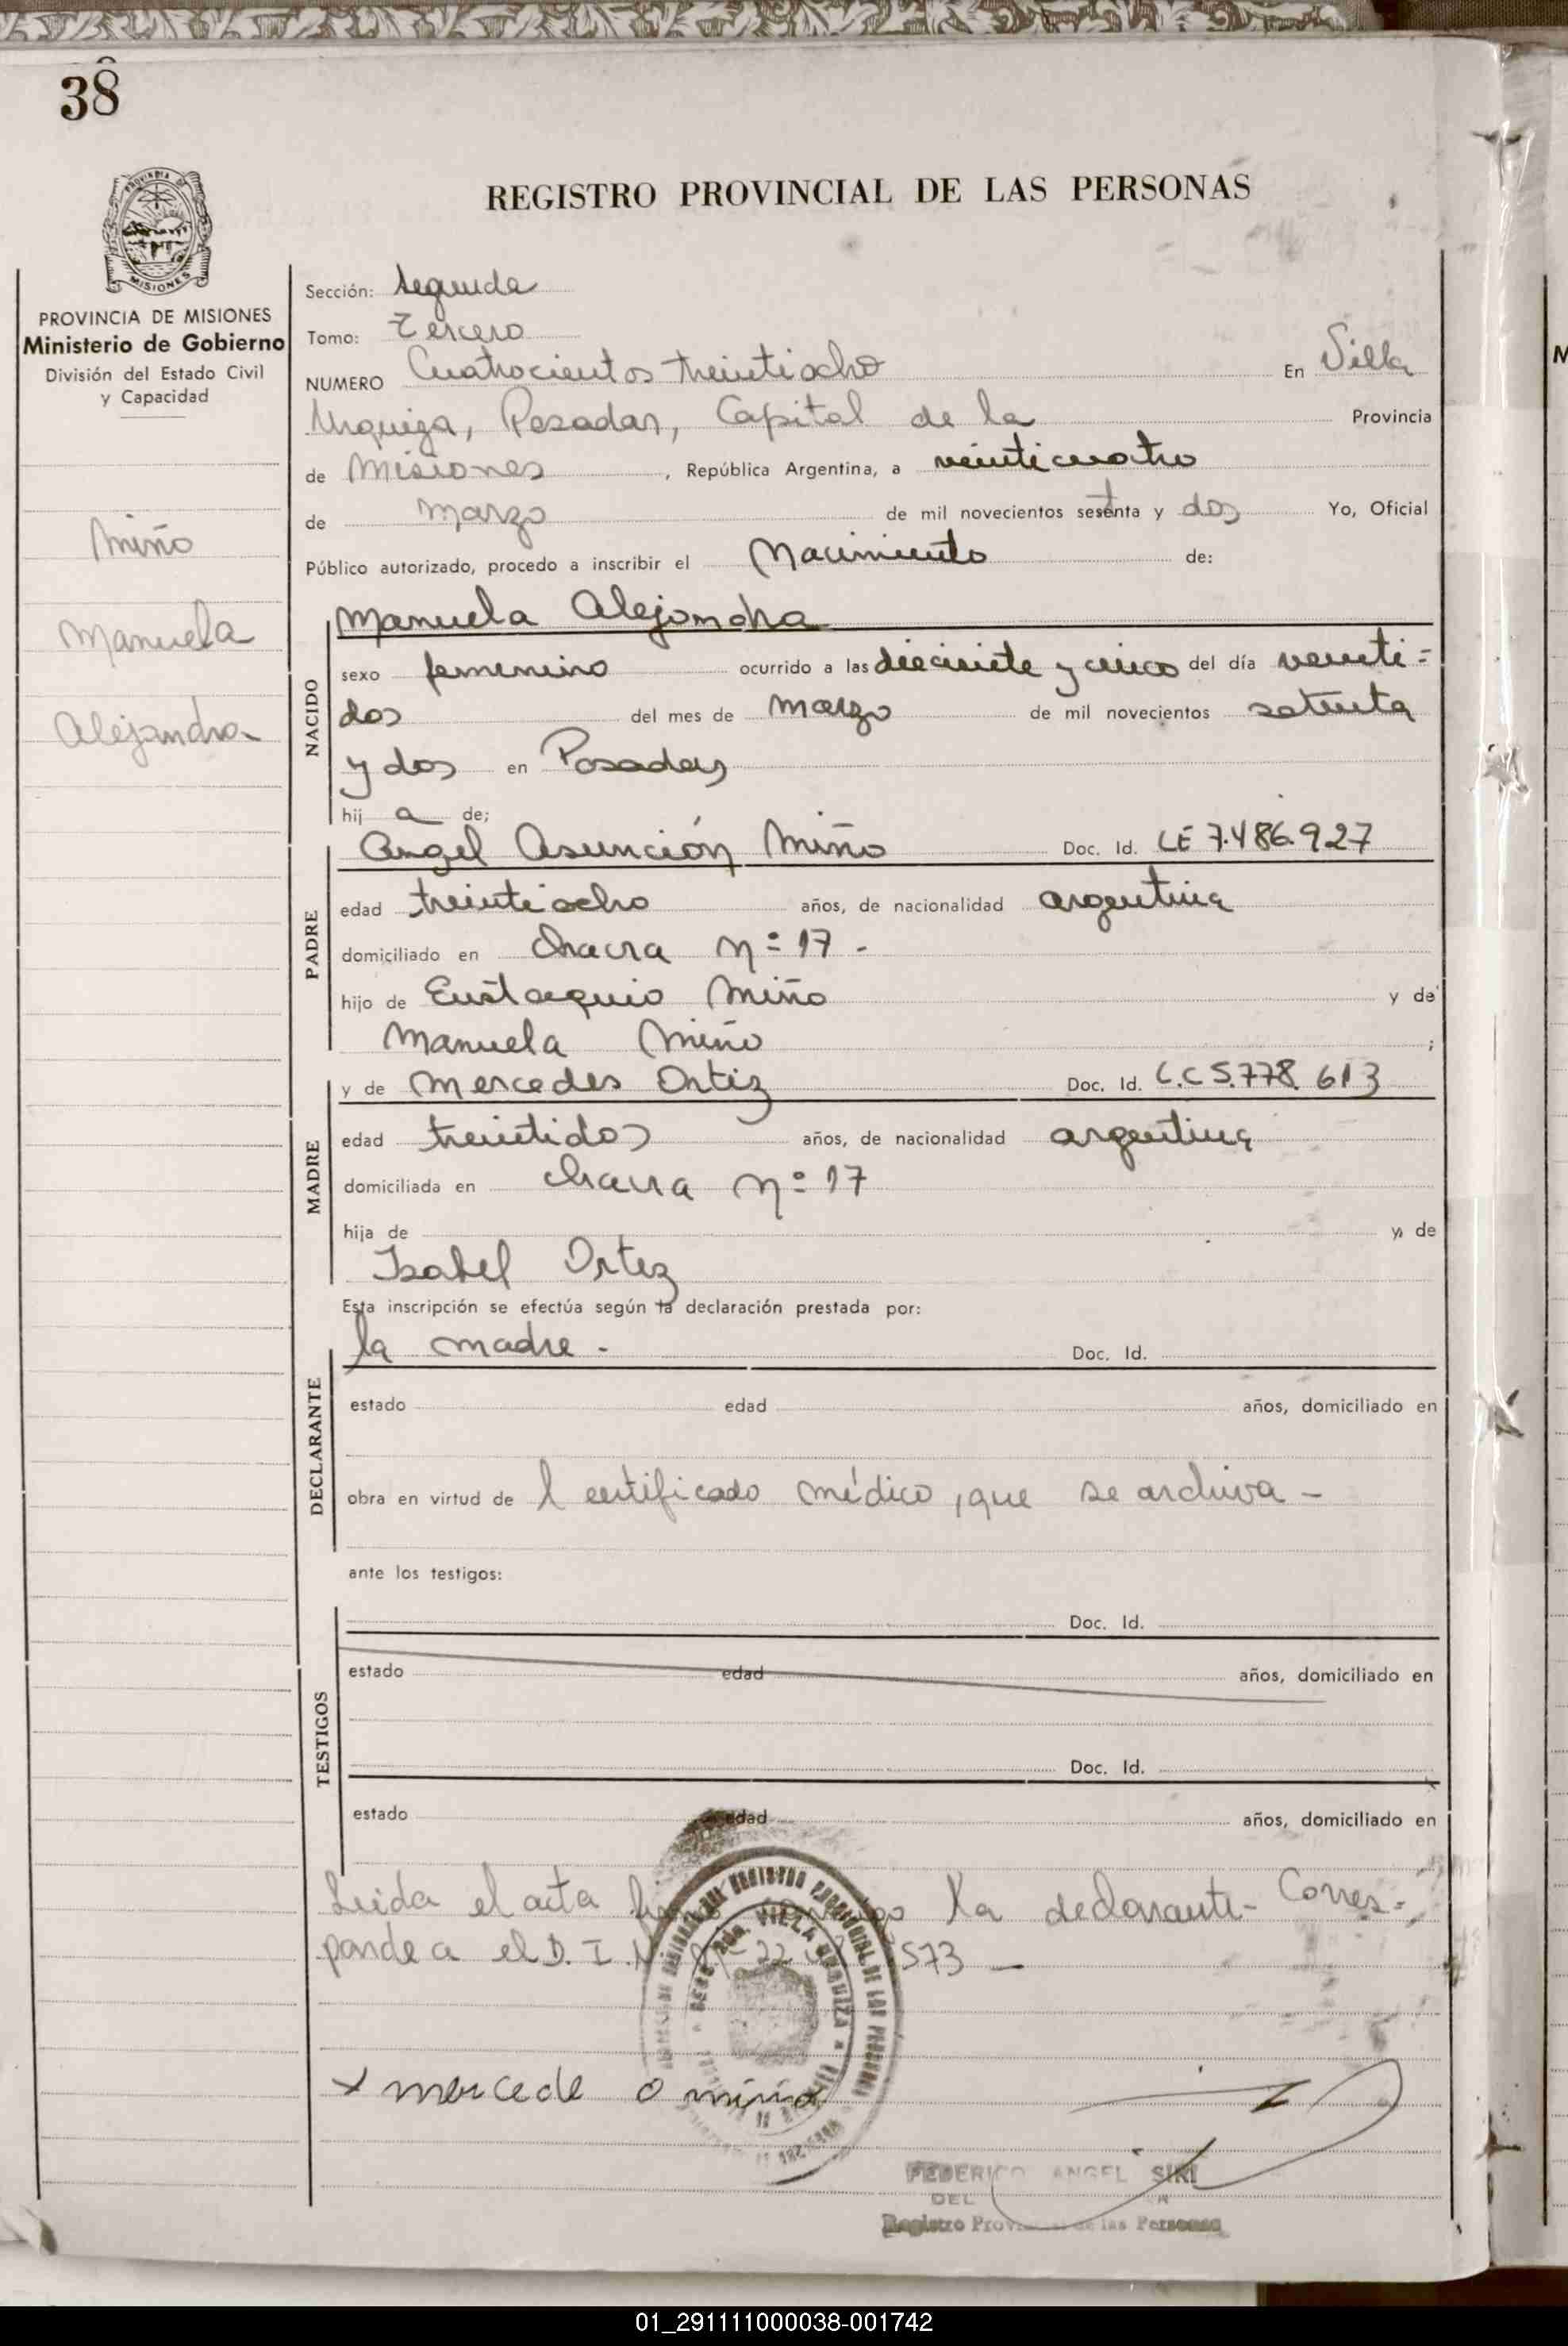 38
REGISTRO PROVINCIAL DE LAS PERSONAS
PROVINCIA DE MISIONES
Ministerio de Gobierno
División del Estado Civil
y Capacidad
Miño
Manuela
Alejandra
Sección: Segunda
Tomo: Tercero
NUMERO Cuatrocientos treintiocho En Villa
Urquiza, Posadas, Capital de la Provincia
de Misiones, República Argentina, a veinticuatro
de Marzo de mil novecientos setenta y dos Yo, Oficial
Público autorizado, procedo a inscribir el Nacimiento de:
NACIDO
Manuela Alejandra
sexo femenino ocurrido a las diecisiete y cinco del día veinti=
dos del mes de Marzo de mil novecientos setenta
y dos en Posadas
hija de;
PADRE
Angel Asunción Miño Doc. Id. LE 7.486.927
edad treintiocho años, de nacionalidad argentina
domiciliado en chacra Nº 17 -
hijo de Eustaquio Miño y de
Manuela Miño ;
MADRE
y de Mercedes Ortiz Doc. Id. L.C 5.778.613
edad treintidos años, de nacionalidad argentina
domiciliada en chacra Nº 17
hija de y de
Isabel Ortiz
Esta inscripción se efectúa según la declaración prestada por:
DECLARANTE
la madre - Doc. Id.
estado edad años, domiciliado en
obra en virtud de l certificado médico, que se archiva -
ante los testigos:
TESTIGOS
Doc. Id.
estado edad años, domiciliado en
Doc. Id.
estado edad años, domiciliado en
Leida el acta la declarante - Corres=
ponde a el D. I. 573 —
x mercede o miño
FEDERICO ANGEL SIRI
DEL
Registro Provincial de las Personas
01_291111000038-001742